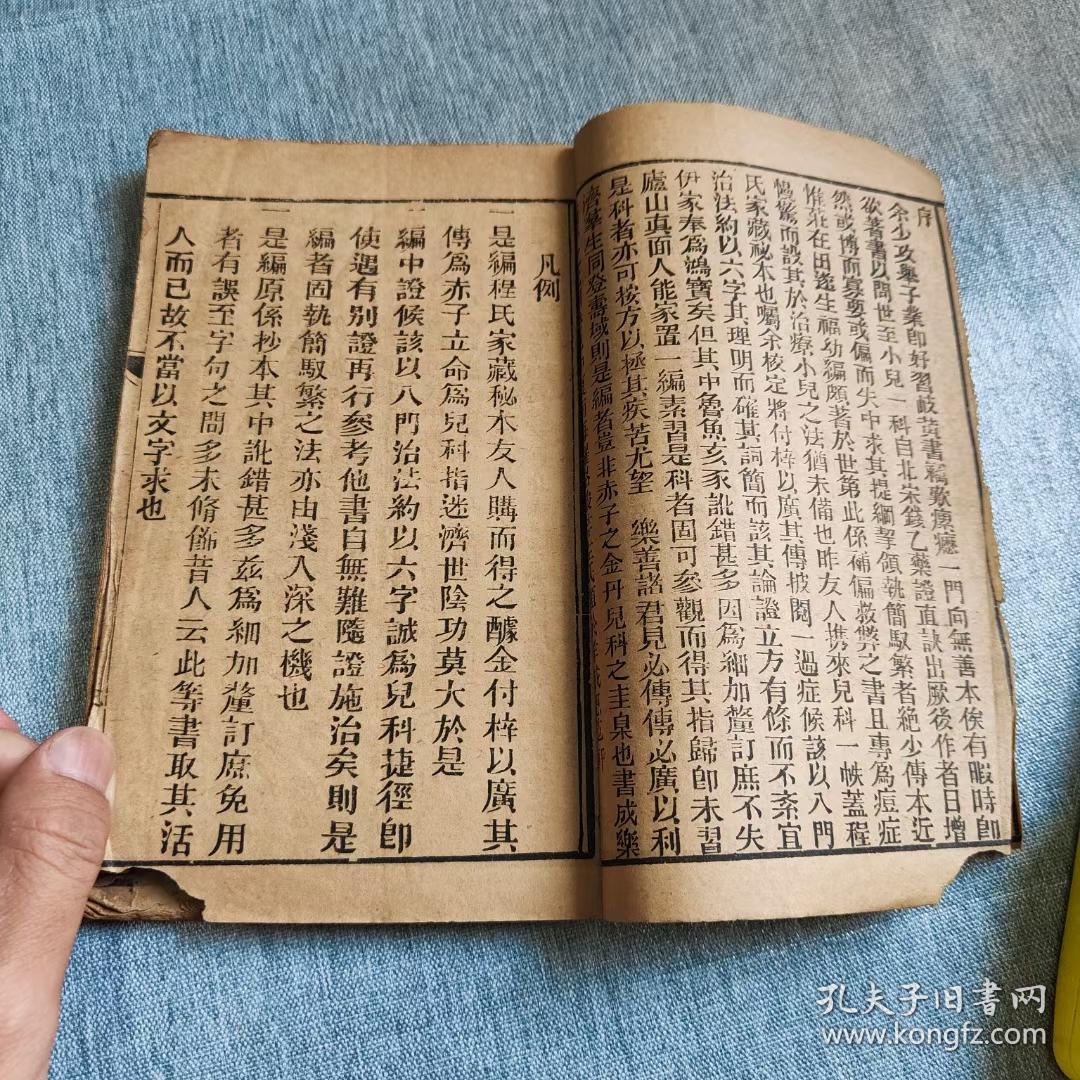 序
余少攻舉子業即好習岐黃書竊歎癍一門向無善本俟有暇時即
欲著書以問世至小兒一科自北宋錢乙藥證直訣出厥後作者日增
然或博而寡要或偏而失中求其提綱挈領執簡馭繁者絶少傳本近
惟莊在田遂生福幼編頗著於世第此係補偏救弊之書且專為痘症
慢驚而設其於治療小兒之法猶未備也昨友人携來兒科一帙蓋程
氏家藏秘本也囑余校定將付梓以廣其傳披閱一過症候該以八門
治法約以六字其理明而確其詞簡而該其論證立方有條而不紊宜
伊家奉為鴻寶矣但其中魯魚亥豕訛錯甚多因為細加釐訂庶不失
廬山真面人能家置一編素習是科者固可參觀而得其指歸即未習
是科者亦可按方以拯其疾苦尤望 樂善諸君見必傳傳必廣以利
濟羣生同登壽域則是編者豈非赤子之金丹兒科之圭臬也書成樂
凡例
一是編程氏家藏秘本友人購而得之醵金付梓以廣其
傳為赤子立命為兒科指迷濟世陰功莫大於是
一編中證候該以八門治法約以六字誠為兒科捷徑即
使遇有別證再行參考他書自無難隨證施治矣則是
編者固執簡馭繁之法亦由淺入深之機也
一是編原係抄本其中訛錯甚多茲為細加釐訂庶免用
者有誤至字句之間多未脩飾昔人云此等書取其活
人而已故不當以文字求也
孔夫子旧书网
www.kongfz.com